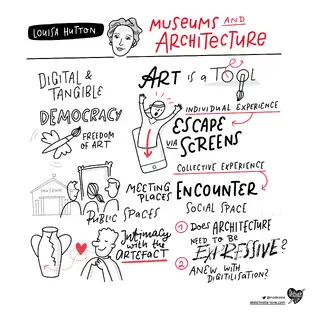 LOUISA HUTTON
MUSEUMS AND
ARCHITECTURE
DIGITAL &
TANGIBLE
DEMOCRACY
FREEDOM
OF ART
MUSEUM
PUBLIC SPACES
MEETING
PLACES
Intimacy
with the
ARTEFACT
ART is a TOOL
INDIVIDUAL EXPERIENCE
ESCAPE
VIA SCREENS
COLLECTIVE EXPERIENCE
ENCOUNTER
SOCIAL SPACE
1 DOES ARCHITECTURE
NEED TO BE
EXPRESSIVE?
2 ANEW WITH
DIGITILISATION?